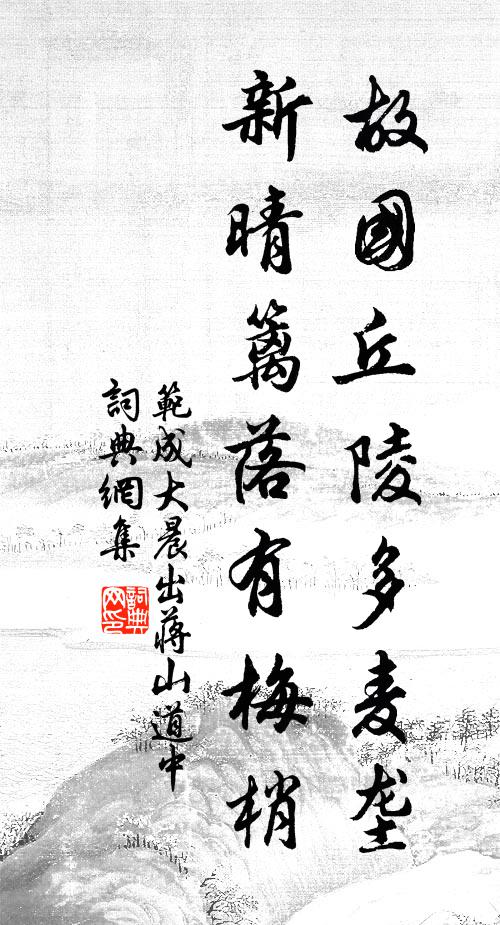 故國丘陵多麦垄
新晴籬落有梅梢
範成大晨出蔣山道中
詞典網集
詞典网印